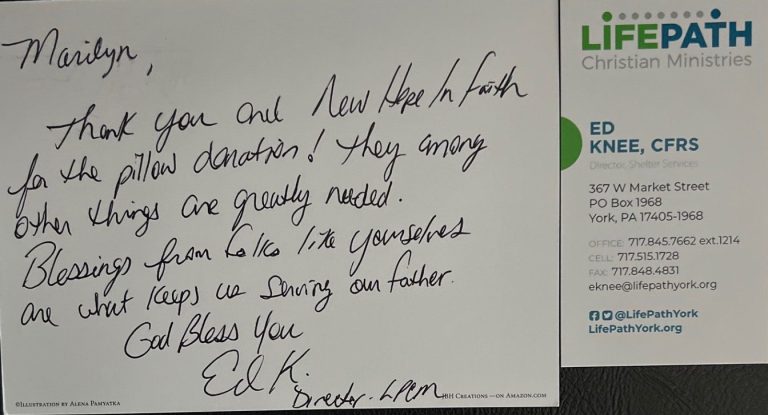 Marilyn,
Thank you and New Hope In Faith
for the pillow donation! They among
other things are greatly needed.
Blessings from folks like yourselves
are what keeps us serving our father.
God Bless You
Ed K.
Director - LPCM
©Illustration by Alena Pamyatka
BH Creations — on Amazon.com
LIFEPATH
Christian Ministries
ED
KNEE, CFRS
Director, Shelter Services
367 W Market Street
PO Box 1968
York, PA 17405-1968
OFFICE: 717.845.7662 ext.1214
CELL: 717.515.1728
FAX: 717.848.4831
eknee@lifepathyork.org
@LifePathYork
LifePathYork.org